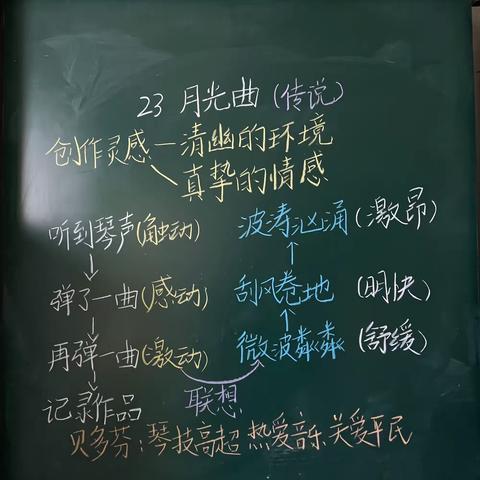 23 月光曲(传说)
创作灵感—清幽的环境
真挚的情感
听到琴声(触动) 波涛汹涌(激昂)
弹了一曲(感动) 刮风卷地(明快)
再弹一曲(激动) 微波粼粼(舒缓)
联想
记录作品
贝多芬:琴技高超 热爱音乐 关爱平民